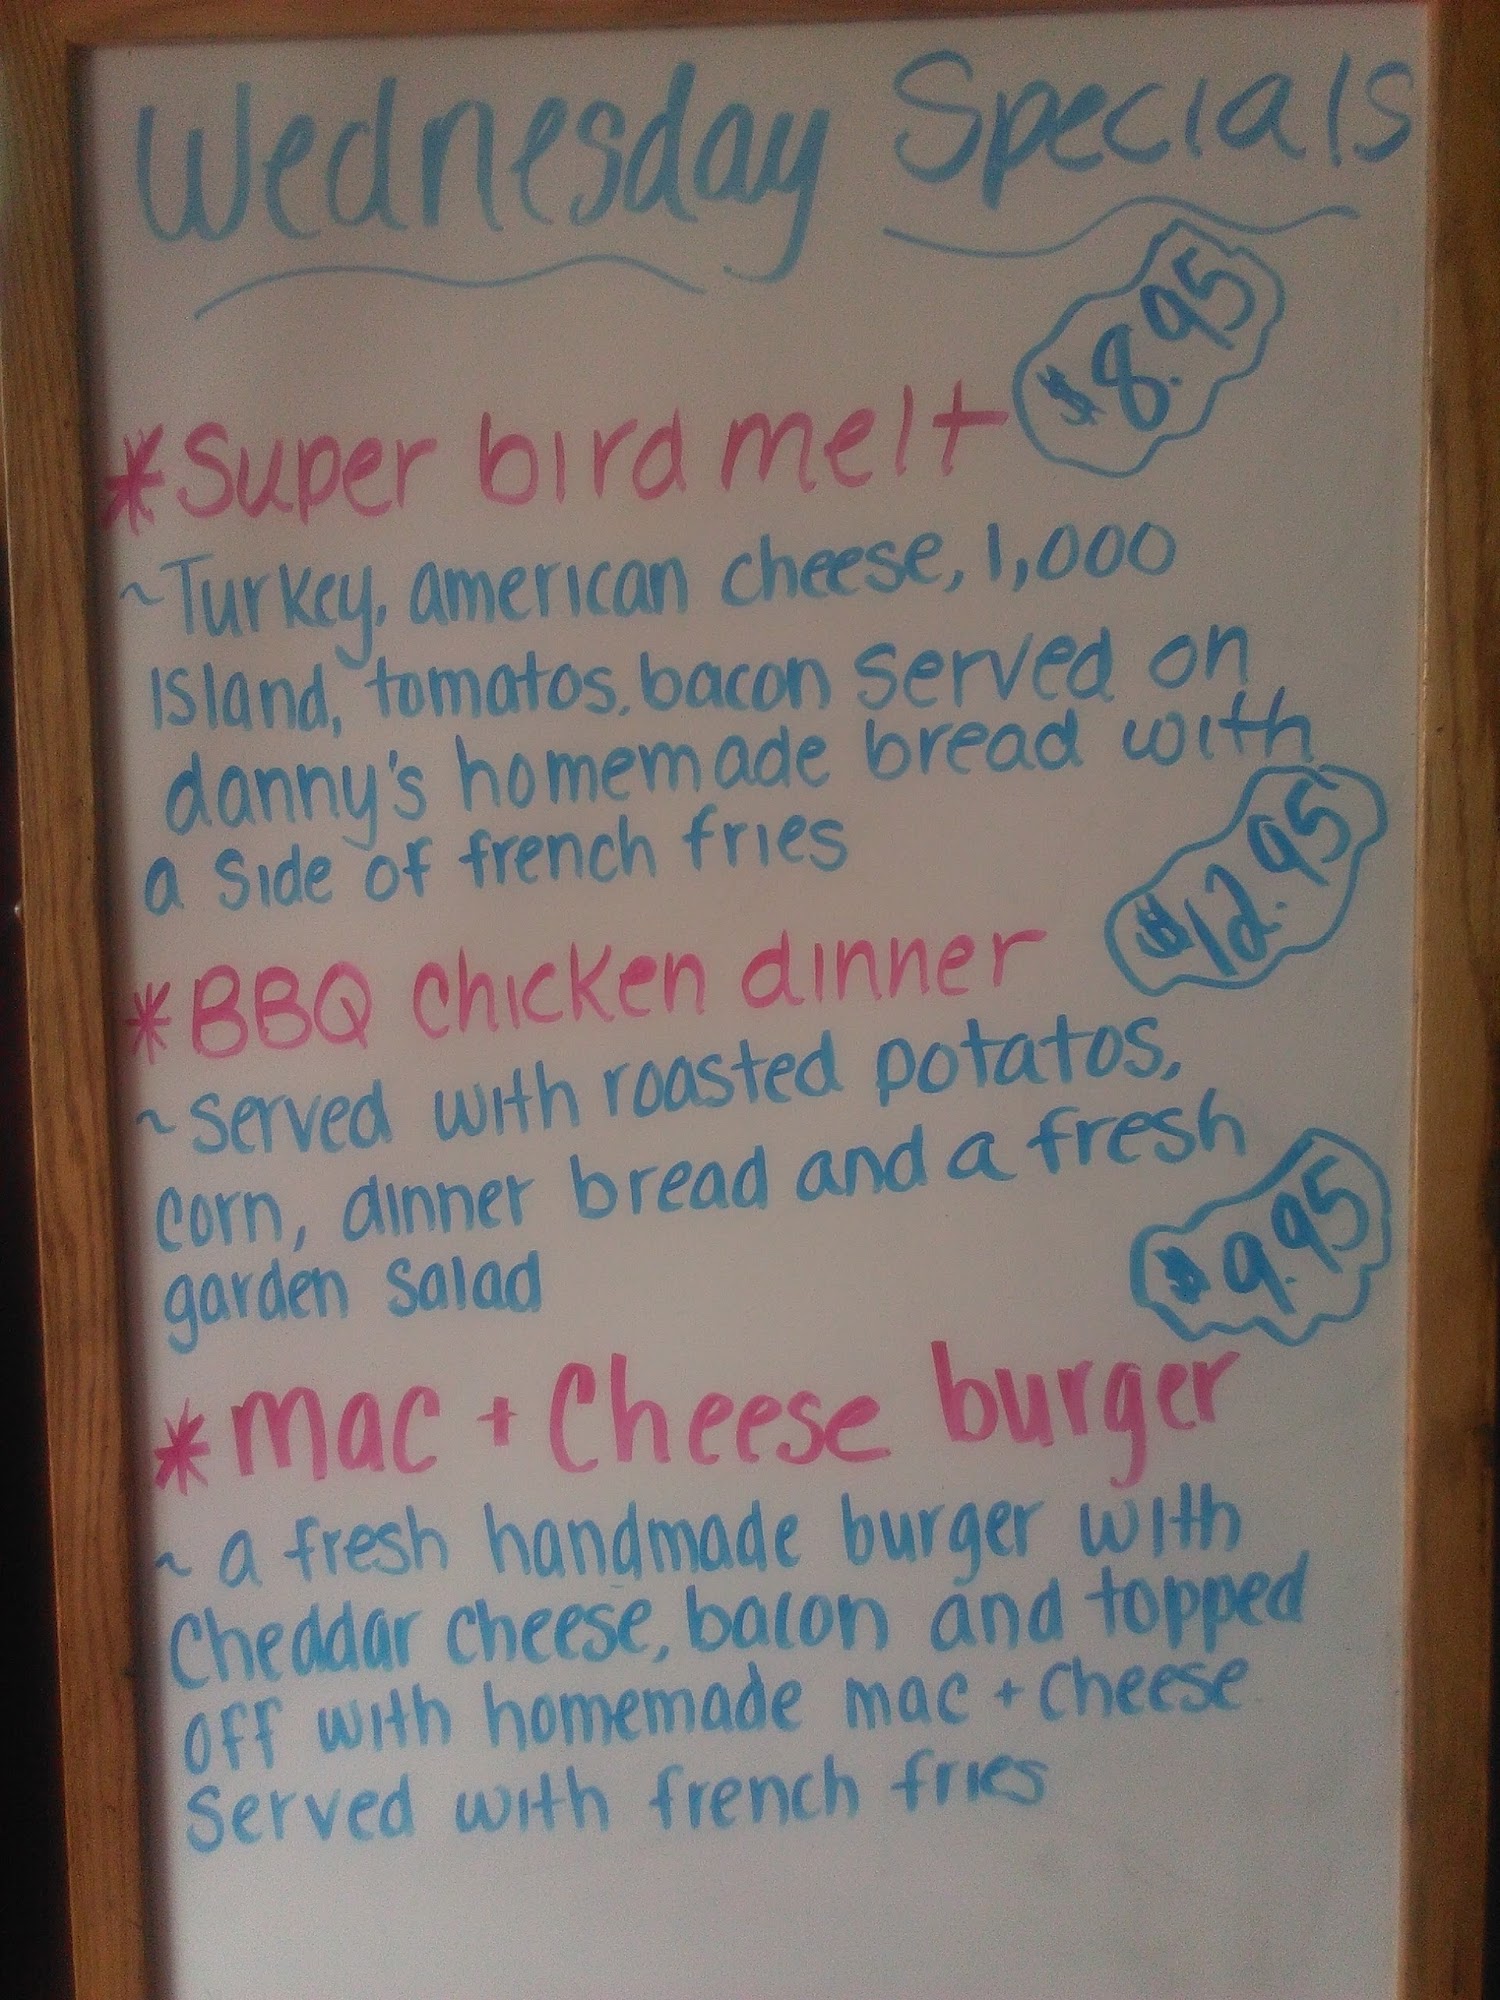 Wednesday Specials
$8.95
*Super bird melt
~Turkey, american cheese, 1,000
Island, tomatos, bacon served on
danny's homemade bread with
a side of french fries
$12.95
*BBQ chicken dinner
~served with roasted potatos,
corn, dinner bread and a fresh
garden salad
$9.95
*mac + cheese burger
~ a fresh handmade burger with
Cheddar cheese, bacon and topped
off with homemade mac + cheese
Served with french fries